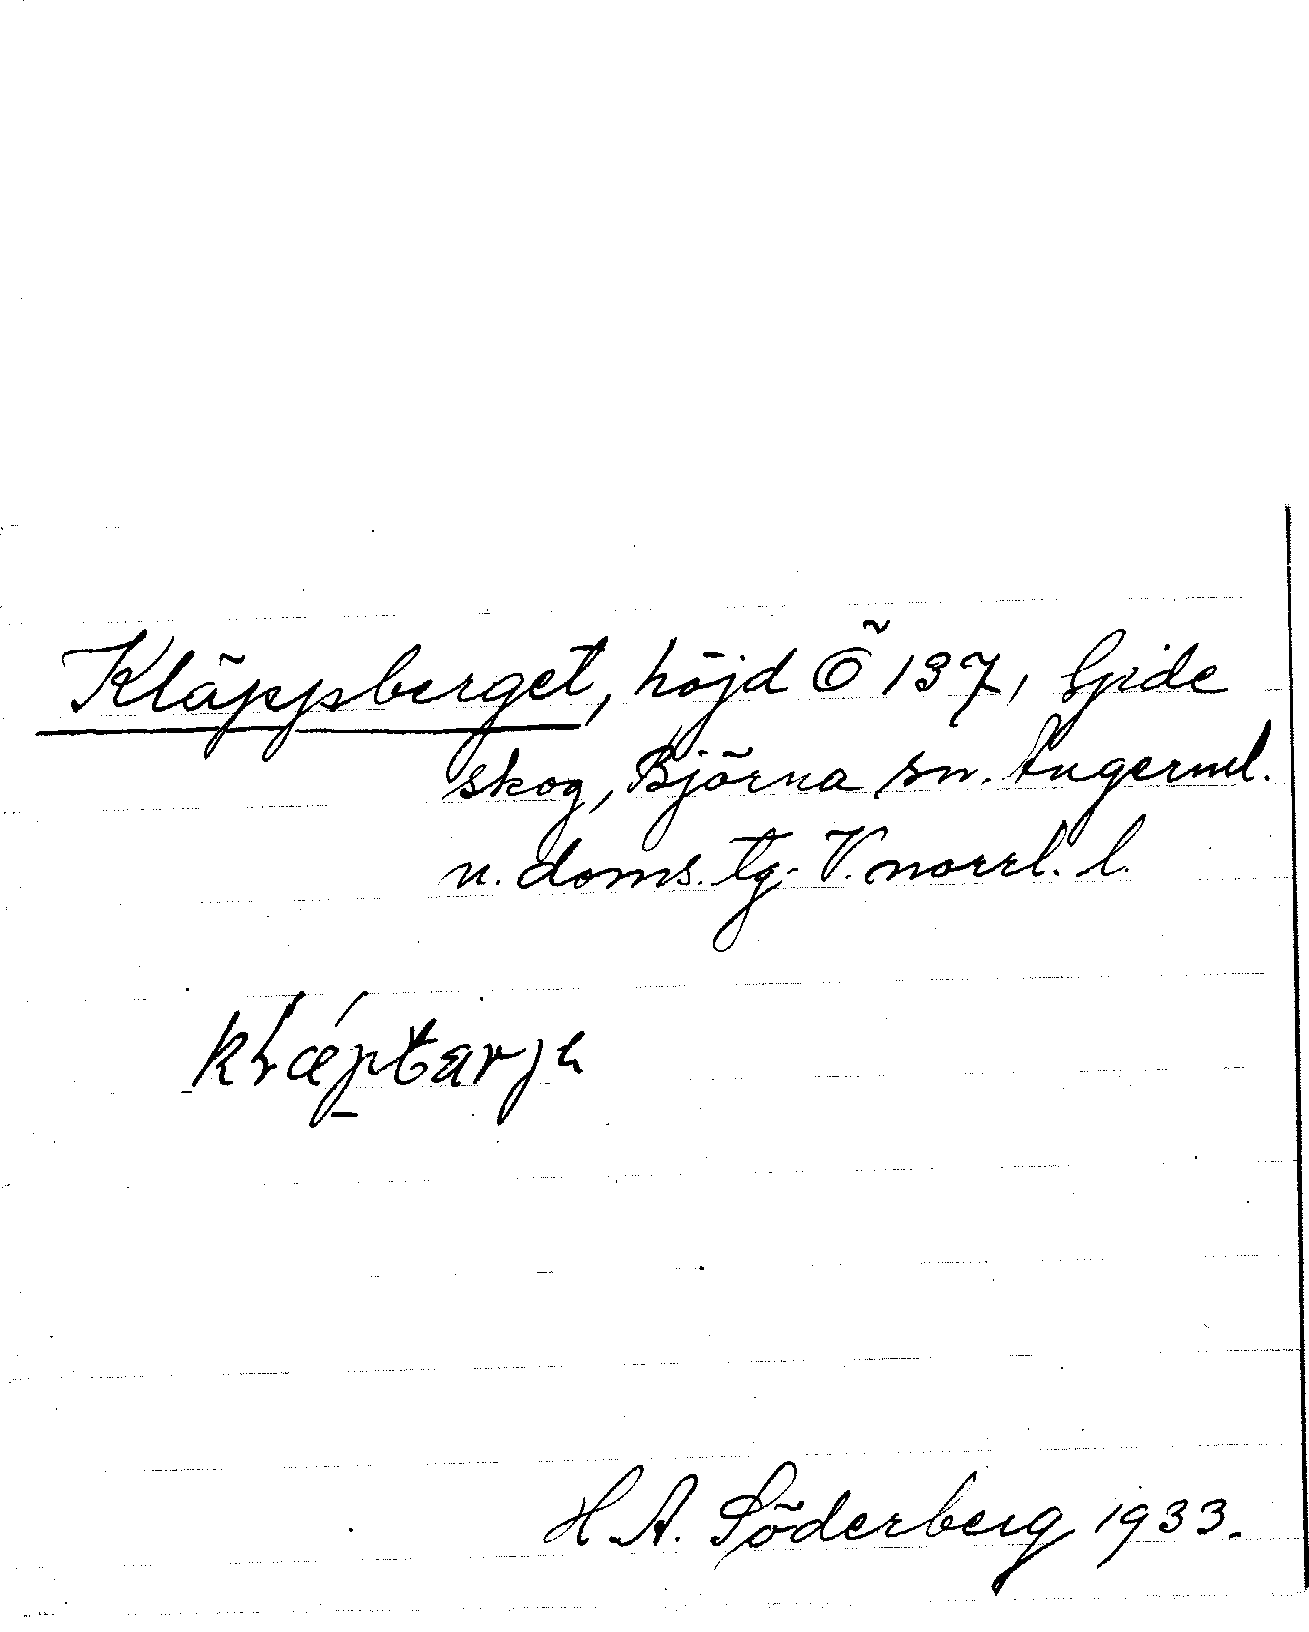 Kläppberget, höjd Ö 137, Gide
skog, Björna sn. Ångerml.
n. doms. tg. V. norrl. l.
H. A. Söderberg 1933.